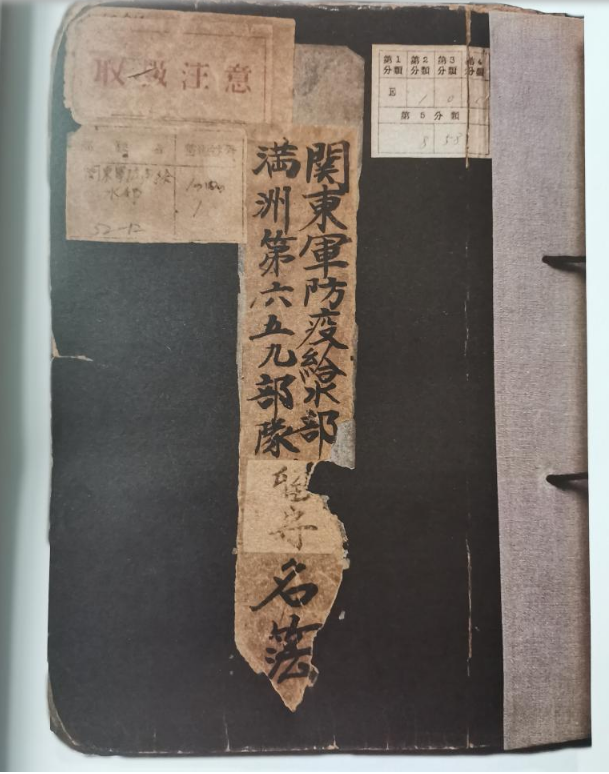 取扱注意
第1 第2 第3
分類 分類 分類 分類
E 1 0
第5分類
関東軍防疫給水部
52-12
関東軍防疫給水部
満洲第六五九部隊
留守名簿